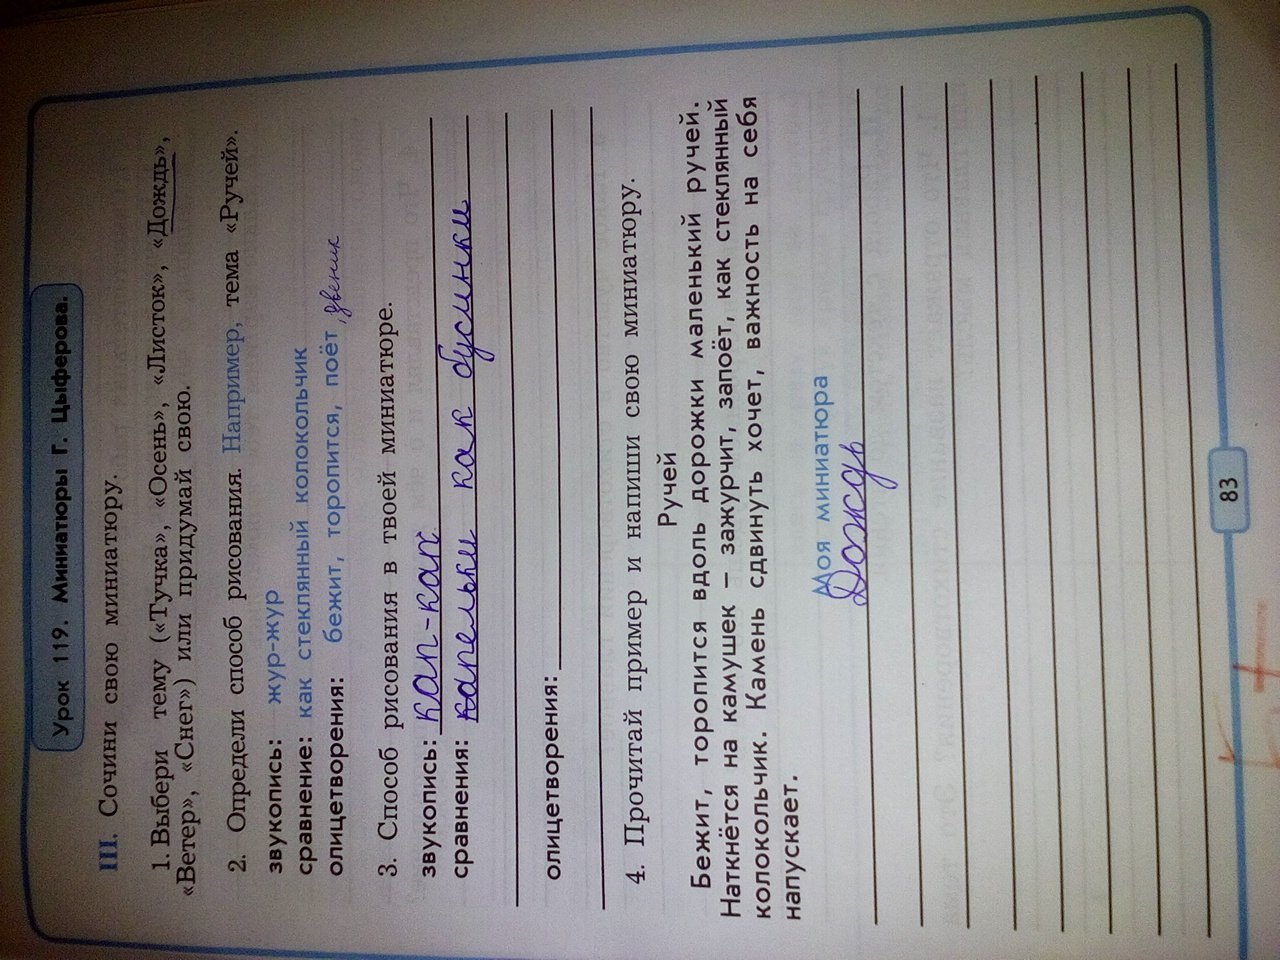 Урок 119. Миниатюры Г. Цыферова.
III. Сочини свою миниатюру.
1. Выбери тему («Тучка», «Осень», «Листок», «Дождь»,
«Ветер», «Снег») или придумай свою.
2. Определи способ рисования. Например, тема «Ручей».
звукопись: жур-жур
сравнение: как стеклянный колокольчик
олицетворения: бежит, торопится, поёт,
3. Способ рисования в твоей миниатюре.
звукопись: кап-кап
сравнения: капельки как бусинки
олицетворения:
4. Прочитай пример и напиши свою миниатюру.
Ручей
Бежит, торопится вдоль дорожки маленький ручей.
Наткнётся на камушек – зажурчит, запоёт, как стеклянный
колокольчик. Камень сдвинуть хочет, важность на себя
напускает.
Моя миниатюра
Дождь
83